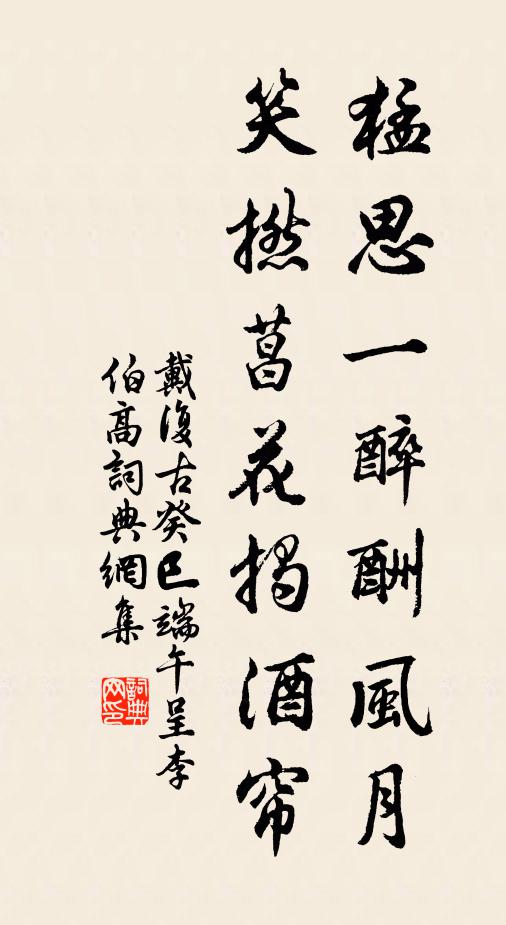 猛思一醉酬風月
笑撚菖花揭酒帘
戴復古癸巳端午呈李
伯高詞典網集
詞典
网印